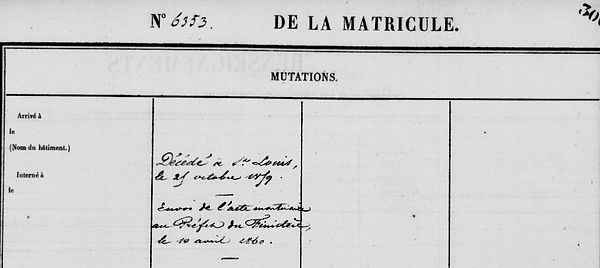 N° 6353. DE LA MATRICULE.
MUTATIONS.
Arrivé à
le
(Nom du bâtiment.)
Interné à
le
Décédé à St. Louis,
le 25 octobre 1859.
Envoi de l'acte mortuaire
au Préfet du Finistère,
le 10 avril 1860.